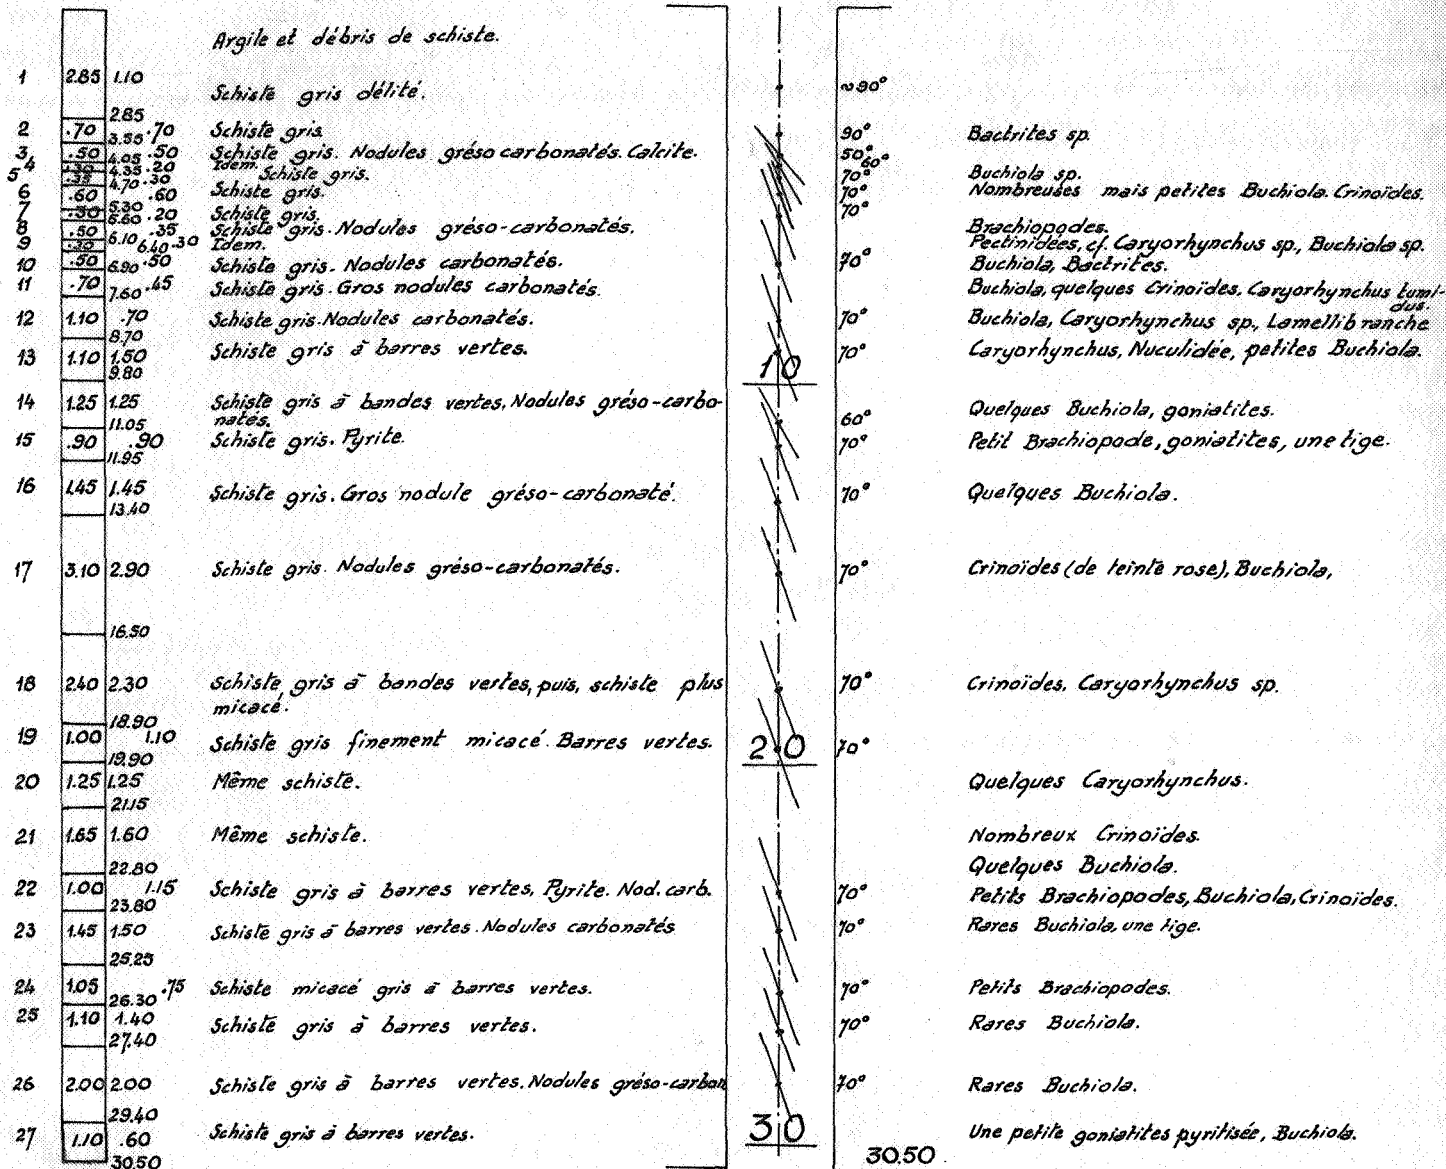 Argile et débris de schiste.
1 2.85 1.10 Schiste gris délité. ~90°
2.85
2 .70 .70 Schiste gris. 90° Bactrites sp.
3.55
3 .50 .50 Schiste gris. Nodules gréso carbonatés. Calcite. 50°
4.05
4 .30 .20 Idem. 60°
4.35
5 .35 .30 Schiste gris. 70° Buchiola sp.
4.70
6 .60 .60 Schiste gris. 70° Nombreuses mais petites Buchiola. Crinoïdes.
5.30
7 .30 .20 Schiste gris. 70°
5.60
8 .50 .35 Schiste gris. Nodules gréso-carbonatés. Brachiopodes.
6.10
9 .30 .30 Idem. Pectinidées, cf. Caryorhynchus sp., Buchiola sp.
6.40
10 .50 .50 Schiste gris. Nodules carbonatés. 70° Buchiola, Bactrites.
6.90
11 .70 .45 Schiste gris. Gros nodules carbonatés. Buchiola, quelques Crinoïdes. Caryorhynchus tumi-
dus.
7.60
12 1.10 .70 Schiste gris. Nodules carbonatés. 70° Buchiola, Caryorhynchus sp., Lamellibranche
8.70
13 1.10 1.50 Schiste gris à barres vertes. 70° Caryorhynchus, Nuculidée, petites Buchiola.
9.80
10
14 1.25 1.25 Schiste gris à bandes vertes. Nodules gréso-carbo-
natés. 60° Quelques Buchiola, goniatites.
11.05
15 .90 .90 Schiste gris. Pyrite. 70° Petit Brachiopode, goniatites, une tige.
11.95
16 1.45 1.45 Schiste gris. Gros nodule gréso-carbonaté. 70° Quelques Buchiola.
13.40
17 3.10 2.90 Schiste gris. Nodules gréso-carbonatés. 70° Crinoïdes (de teinte rose), Buchiola,
16.50
18 2.40 2.30 Schiste gris à bandes vertes, puis, schiste plus
micacé. 70° Crinoïdes. Caryorhynchus sp.
18.90
19 1.00 1.10 Schiste gris finement micacé. Barres vertes. 70°
20
19.90
20 1.25 1.25 Même schiste. Quelques Caryorhynchus.
21.15
21 1.65 1.60 Même schiste. Nombreux Crinoïdes.
22.80 Quelques Buchiola.
22 1.00 1.15 Schiste gris à barres vertes. Pyrite. Nod. carb. 70° Petits Brachiopodes, Buchiola, Crinoïdes.
23.80
23 1.45 1.50 Schiste gris à barres vertes. Nodules carbonatés 70° Rares Buchiola, une tige.
25.25
24 1.05 .75 Schiste micacé gris à barres vertes. 70° Petits Brachiopodes.
26.30
25 1.10 1.40 Schiste gris à barres vertes. 70° Rares Buchiola.
27.40
26 2.00 2.00 Schiste gris à barres vertes. Nodules gréso-carbon 70° Rares Buchiola.
29.40
27 1.10 .60 Schiste gris à barres vertes. 30 Une petite goniatites pyritisée, Buchiola.
30.50 30.50